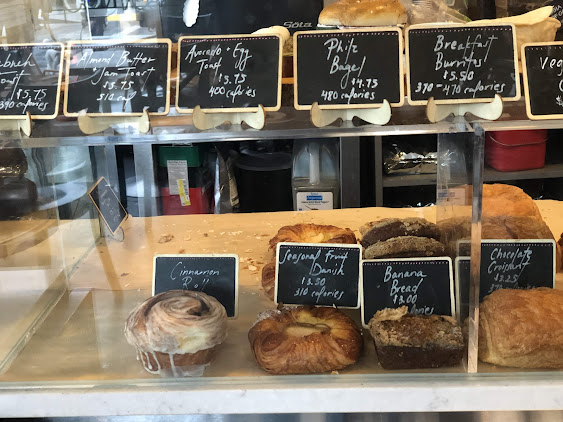 Toast
$.75
390 calories
Almond Butter
+ Jam Toast
$5.75
510 cal
Avocado + Egg
Toast
$5.75
400 calories
Philz
Bagel
$4.75
480 calories
Breakfast
Burritos!
$5.50
390 - 470 calories
Cinnamon
Roll
Seasonal Fruit
Danish
$3.50
310 calories
Banana
Bread
$3.00
calories
Chocolate
Croissant
$3.25